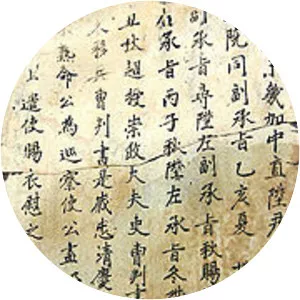 幾加中直陞尹
院同副承旨乙亥夏
副承旨尋陞左副承旨秋賜
承旨丙子秋陞左承旨冬
丑秋超授崇政大夫吏曹判書
移兵曹判書是歲忠清慶
命公為巡察使公盡
上遣使賜衣慰之